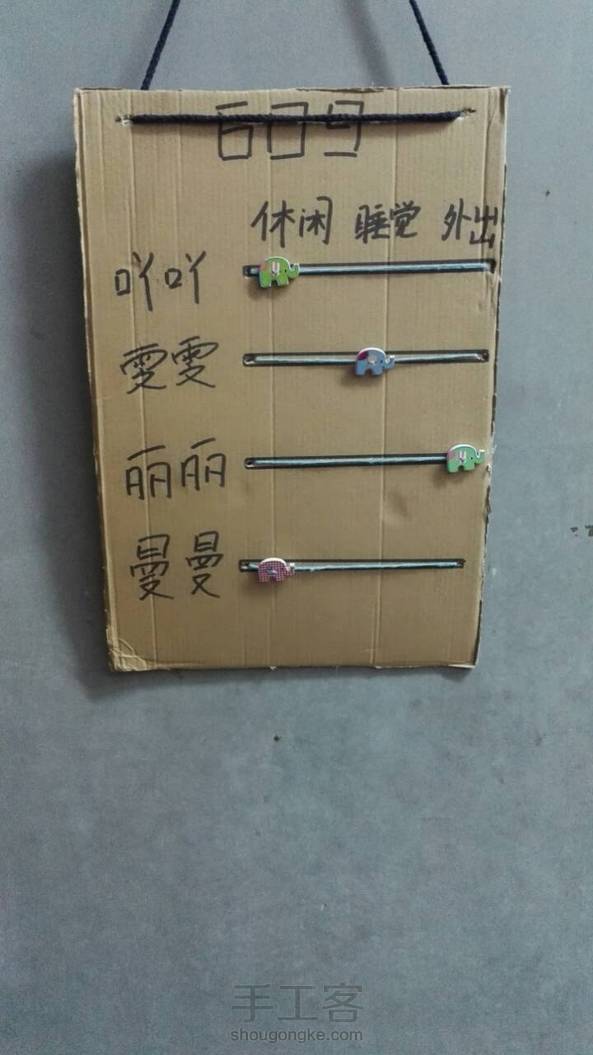 609
休闲 睡觉 外出
吖吖
雯雯
丽丽
曼曼
手工客
shougongke.com